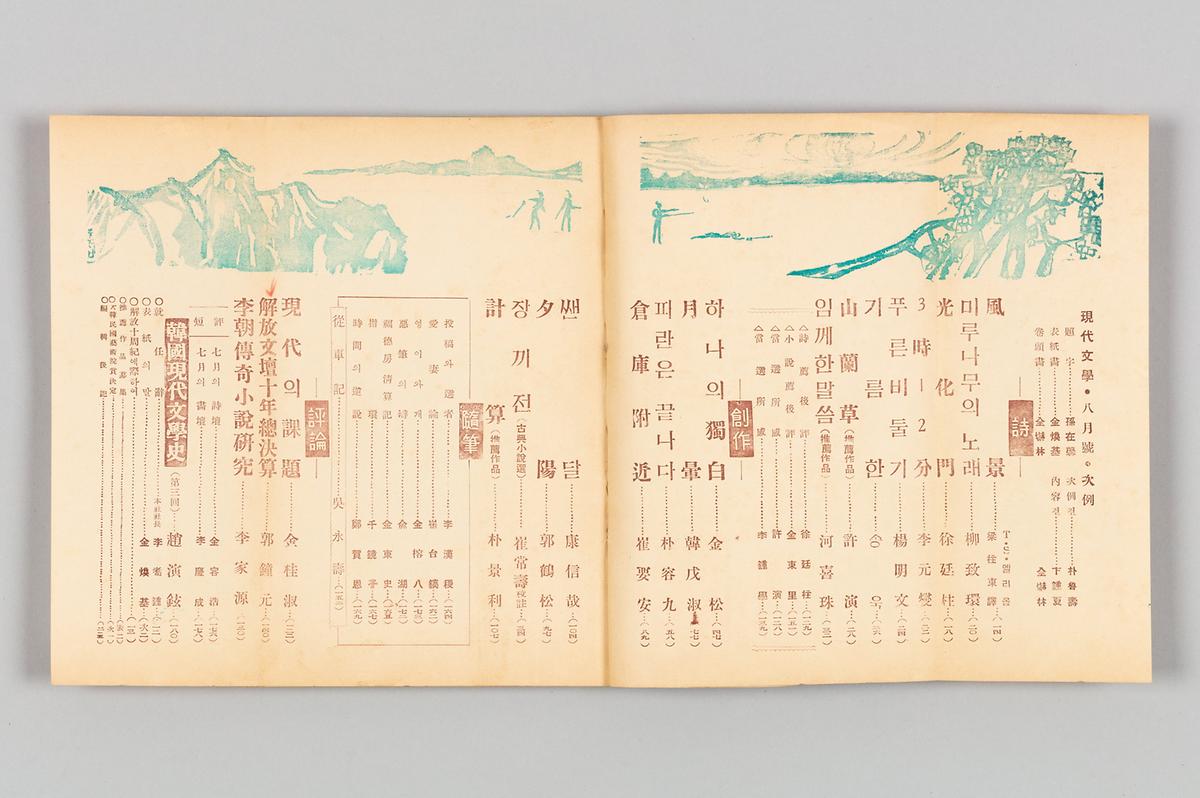 現代文學・八月號・次例
題字 孫在馨 次例컷 朴魯壽
表紙畵 金煥基 內容컷 卞鍾夏
卷頭畵
詩
風景 T・S・엘리올 梁柱東譯
미루나무의 노래 柳致環
光化門 徐廷柱
3時12分 李元燮
푸른 비둘기 楊明文
기름한
山蘭草(推薦作品) 許演
임께 한말씀(推薦作品) 河喜珠
△詩薦後評 徐廷柱
△小說薦後評 金東里
△當選所感 許演
△當選所感 李鍾學
創作
하나의 獨白 金松
月暈 韓戊淑
피란은 끝나다 朴容九
倉庫附近 崔要安
싼달 康信哉
夕陽 郭鶴松
장끼전(古典小說選) 崔常壽校註
計算(推薦作品) 朴景利
隨筆
投稿와 選者 李漢稷
愛妻論 崔台鎬
영이와 개 金榕八
惡筆의 辯 兪湖
福德房淸算記 金東史
指環 千鏡子
時間의 造設 鄭賀恩
從車記 吳永壽
評論
現代의 課題 金桂淑
解放文壇十年總決算 郭鐘元
李朝傳奇小說硏究 李家源
短評
七月의 詩壇 金容浩
七月의 畵壇 李慶成
韓國現代文學史(第三回) 趙演鉉
○就任辭 本社社長 李耄鍾
○表紙의 말 金煥基
○解放十周紀에 際하여
○推薦作品募集
○大韓民國藝術院賞決定
○編輯後記